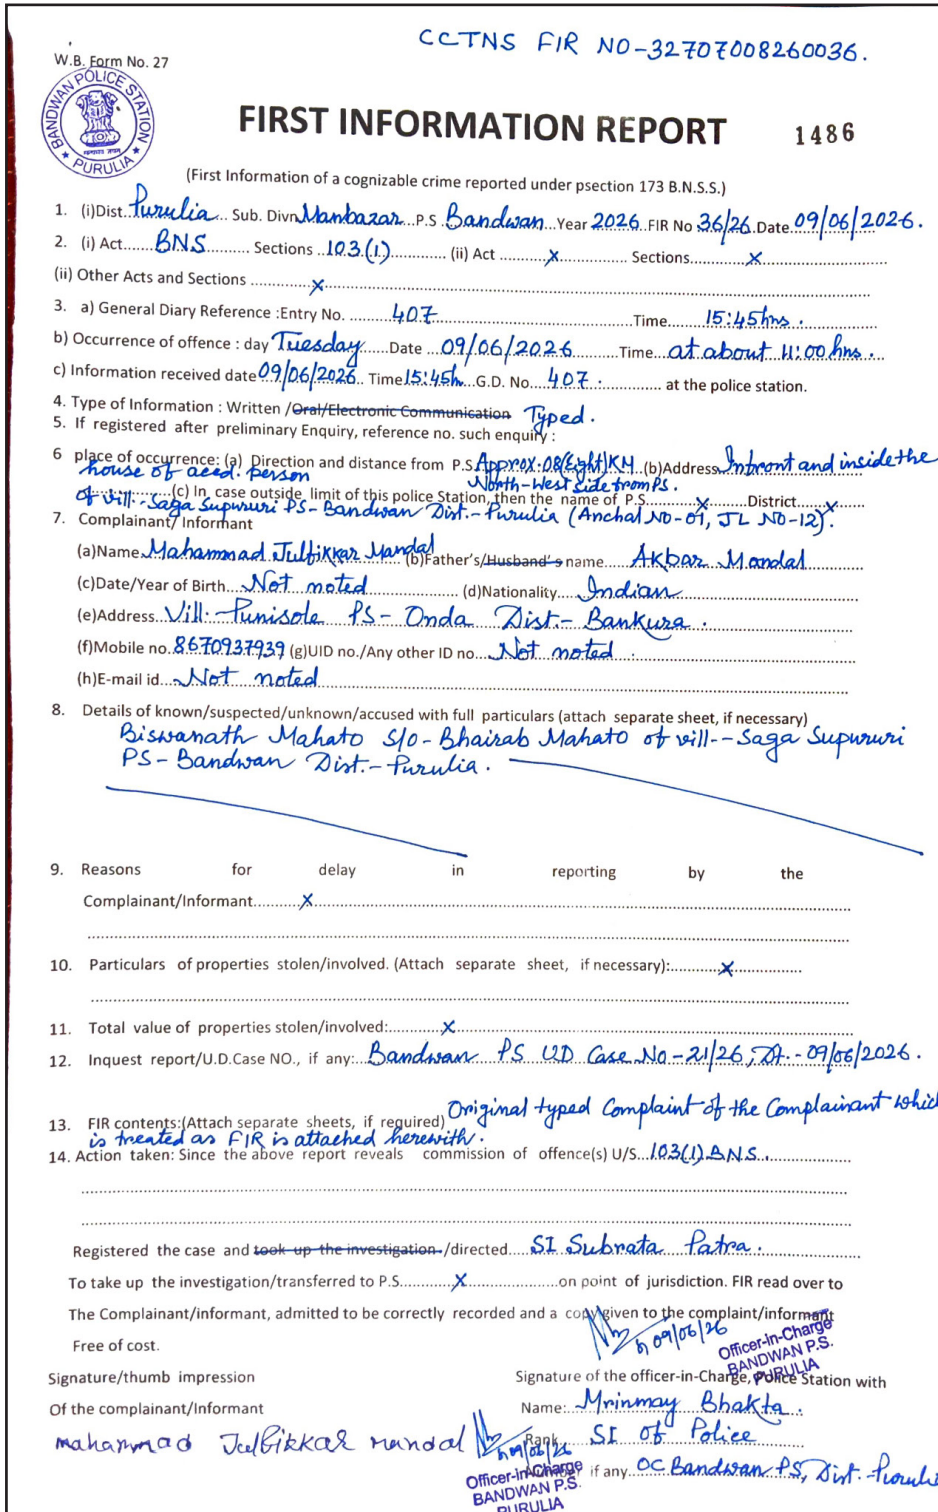 CCTNS FIR NO-32707008260036.
W.B. Form No. 27
BANDWAN POLICE STATION
PURULIA
FIRST INFORMATION REPORT 1486
(First Information of a cognizable crime reported under psection 173 B.N.S.S.)
1. (i)Dist. Purulia Sub. Divn Manbazar P.S Bandwan Year 2026 FIR No 36/26 Date 09/06/2026.
2. (i) Act BNS Sections 103(1) (ii) Act x Sections x
(ii) Other Acts and Sections x
3. a) General Diary Reference :Entry No. 407 Time 15:45hrs.
b) Occurrence of offence : day Tuesday Date 09/06/2026 Time at about 11:00 hrs.
c) Information received date 09/06/2026 Time 15:45h G.D. No. 407. at the police station.
4. Type of Information : Written /Oral/Electronic Communication Typed.
5. If registered after preliminary Enquiry, reference no. such enquiry :
6 place of occurrence: (a) Direction and distance from P.S Approx-08(Eight)KM (b)Address Infront and inside the
house of accd. person North-West side from PS.
(c) In case outside limit of this police Station, then the name of P.S x District x
of vill- Saga Supururi PS-Bandwan Dist.-Purulia (Anchal NO-01, JL NO-12).
7. Complainant/ Informant
(a)Name Mahammad Julfikkar Mandal (b)Father's/Husband's name Akbar Mondal
(c)Date/Year of Birth Not noted (d)Nationality Indian
(e)Address Vill.-Punisole PS-Onda Dist.-Bankura.
(f)Mobile no. 8670937939 (g)UID no./Any other ID no. Not noted
(h)E-mail id Not noted
8. Details of known/suspected/unknown/accused with full particulars (attach separate sheet, if necessary)
Biswanath Mahato S/o-Bhairab Mahato of vill--Saga Supururi
PS-Bandwan Dist.-Purulia.
9. Reasons for delay in reporting by the
Complainant/Informant x
10. Particulars of properties stolen/involved. (Attach separate sheet, if necessary): x
11. Total value of properties stolen/involved: x
12. Inquest report/U.D.Case NO., if any: Bandwan PS UD Case No-21/26, Dt.-09/06/2026.
13. FIR contents:(Attach separate sheets, if required) Original typed Complaint of the Complainant which
is treated as FIR is attached herewith.
14. Action taken: Since the above report reveals commission of offence(s) U/S 103(1) BNS.
Registered the case and took up the investigation /directed SI Subrata Patra.
To take up the investigation/transferred to P.S x on point of jurisdiction. FIR read over to
The Complainant/informant, admitted to be correctly recorded and a copy given to the complaint/informant
Free of cost.
09/06/26
Officer-in-Charge
BANDWAN P.S.
PURULIA
Signature/thumb impression
Signature of the officer-in-Charge, Police Station with
Of the complainant/Informant
Name: Mrinmay Bhakta.
mahammad Julbikkar mandal
09/06/26
Rank SI of Police
Officer-in-Charge
BANDWAN P.S.
PURULIA
if any OC Bandwan PS, Dist.-Purulia